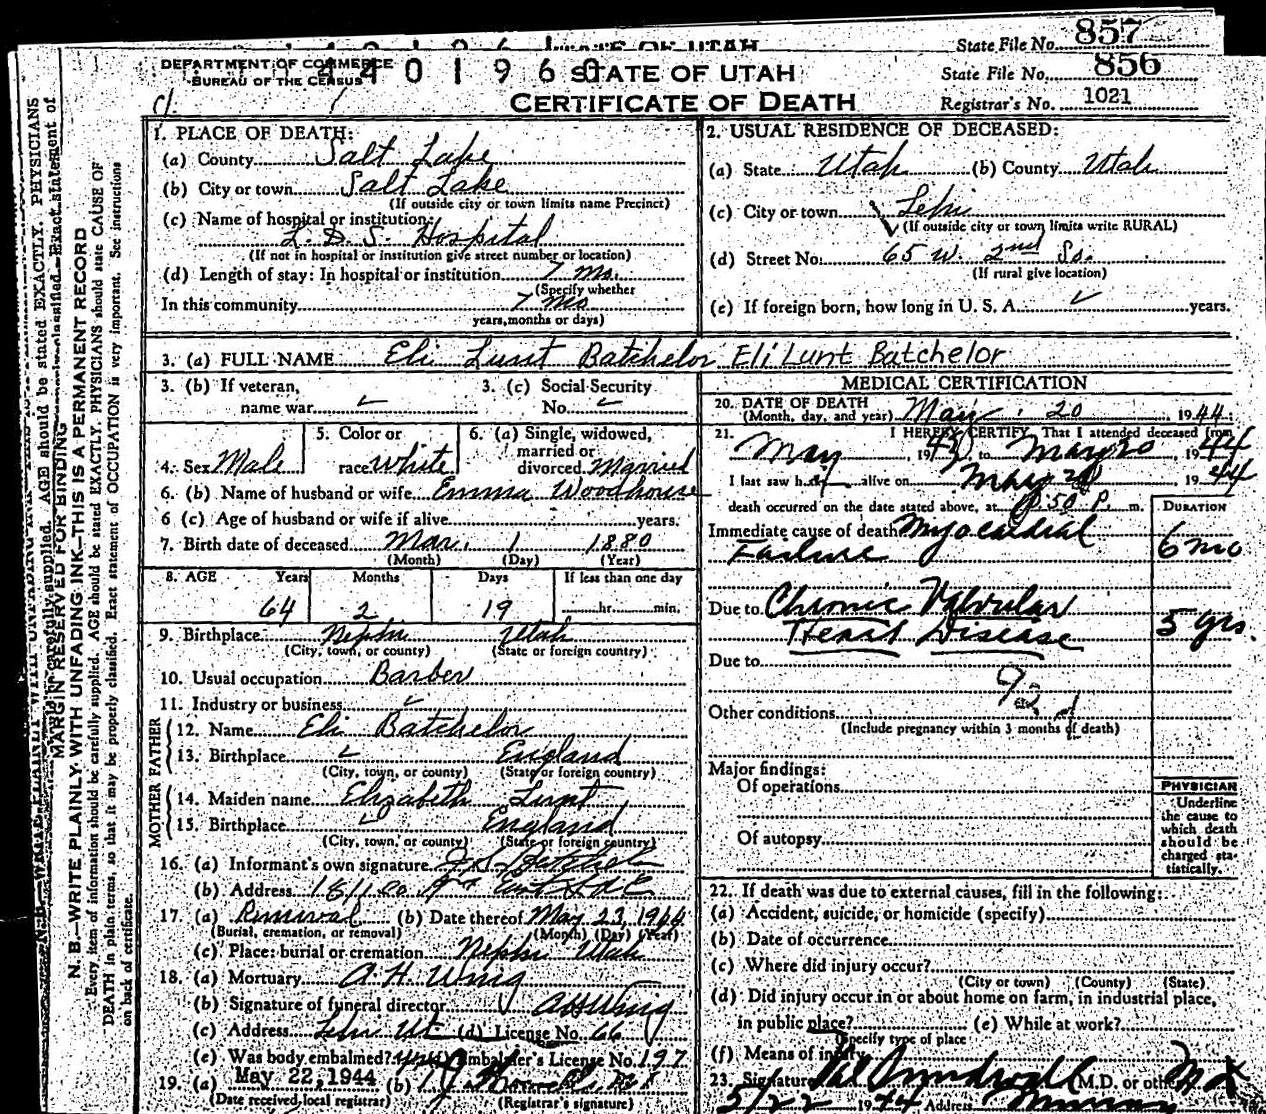 State File No. 857
DEPARTMENT OF COMMERCE
BUREAU OF THE CENSUS
4401960
STATE OF UTAH
State File No. 856
CERTIFICATE OF DEATH
Registrar's No. 1021
1. PLACE OF DEATH:
(a) County Salt Lake
(b) City or town Salt Lake
(If outside city or town limits name Precinct)
(c) Name of hospital or institution:
L. D. S. Hospital
(If not in hospital or institution give street number or location)
(d) Length of stay: In hospital or institution 7 mo.
(Specify whether
In this community 7 mo
years, months or days)
2. USUAL RESIDENCE OF DECEASED:
(a) State Utah (b) County Utah
(c) City or town Lehi
(If outside city or town limits write RURAL)
(d) Street No. 65 W. 2nd So.
(If rural give location)
(e) If foreign born, how long in U. S. A. years.
3. (a) FULL NAME Eli Lunt Batchelor Eli Lunt Batchelor
3. (b) If veteran,
name war
3. (c) Social Security
No.
4. Sex Male
5. Color or
race White
6. (a) Single, widowed,
married or
divorced Married
6. (b) Name of husband or wife Emma Woodhouse
6 (c) Age of husband or wife if alive years.
7. Birth date of deceased Mar. 1 1880
(Month) (Day) (Year)
8. AGE Years Months Days If less than one day
64 2 19 hr. min.
9. Birthplace Nephi Utah
(City, town, or county) (State or foreign country)
10. Usual occupation Barber
11. Industry or business
FATHER
12. Name Eli Batchelor
13. Birthplace England
(City, town, or county) (State or foreign country)
MOTHER
14. Maiden name Elizabeth Lunt
15. Birthplace England
(City, town, or county) (State or foreign country)
16. (a) Informant's own signature Batchelor
(b) Address
17. (a) Removal (b) Date thereof May 23, 1944
(Burial, cremation, or removal) (Month) (Day) (Year)
(c) Place: burial or cremation Nephi Utah
18. (a) Mortuary A. H. Wing
(b) Signature of funeral director A H Wing
(c) Address Lehi Ut (d) License No. 66
(e) Was body embalmed? yes Embalmer's License No. 197
19. (a) May 22, 1944 (b)
(Date received local registrar) (Registrar's signature)
MEDICAL CERTIFICATION
20. DATE OF DEATH
(Month, day, and year) May 20, 1944
21. I HEREBY CERTIFY, That I attended deceased from
May 1943, to May 20 1944
I last saw h alive on May 20 1944
death occurred on the date stated above, at 50 P. m.
DURATION
Immediate cause of death Myocardial
Failure 6 mo
Due to Chronic Valvular
Heart Disease 5 yrs.
Due to
92 d
Other conditions
(Include pregnancy within 3 months of death)
Major findings:
Of operations
Of autopsy
PHYSICIAN
Underline
the cause to
which death
should be
charged sta-
tistically.
22. If death was due to external causes, fill in the following:
(a) Accident, suicide, or homicide (specify)
(b) Date of occurrence
(c) Where did injury occur?
(City or town) (County) (State)
(d) Did injury occur in or about home on farm, in industrial place,
in public place? (e) While at work?
(Specify type of place
(f) Means of injury
23. Signature Val Sundwall (M.D. or other) M D
5/22 1944 Address Murray
MARGIN RESERVED FOR BINDING
N. B.—WRITE PLAINLY, WITH UNFADING INK—THIS IS A PERMANENT RECORD
Every item of information should be carefully supplied. AGE should be stated EXACTLY. PHYSICIANS should state CAUSE OF
DEATH in plain terms, so that it may be properly classified. Exact statement of OCCUPATION is very important. See instructions
on back of certificate.